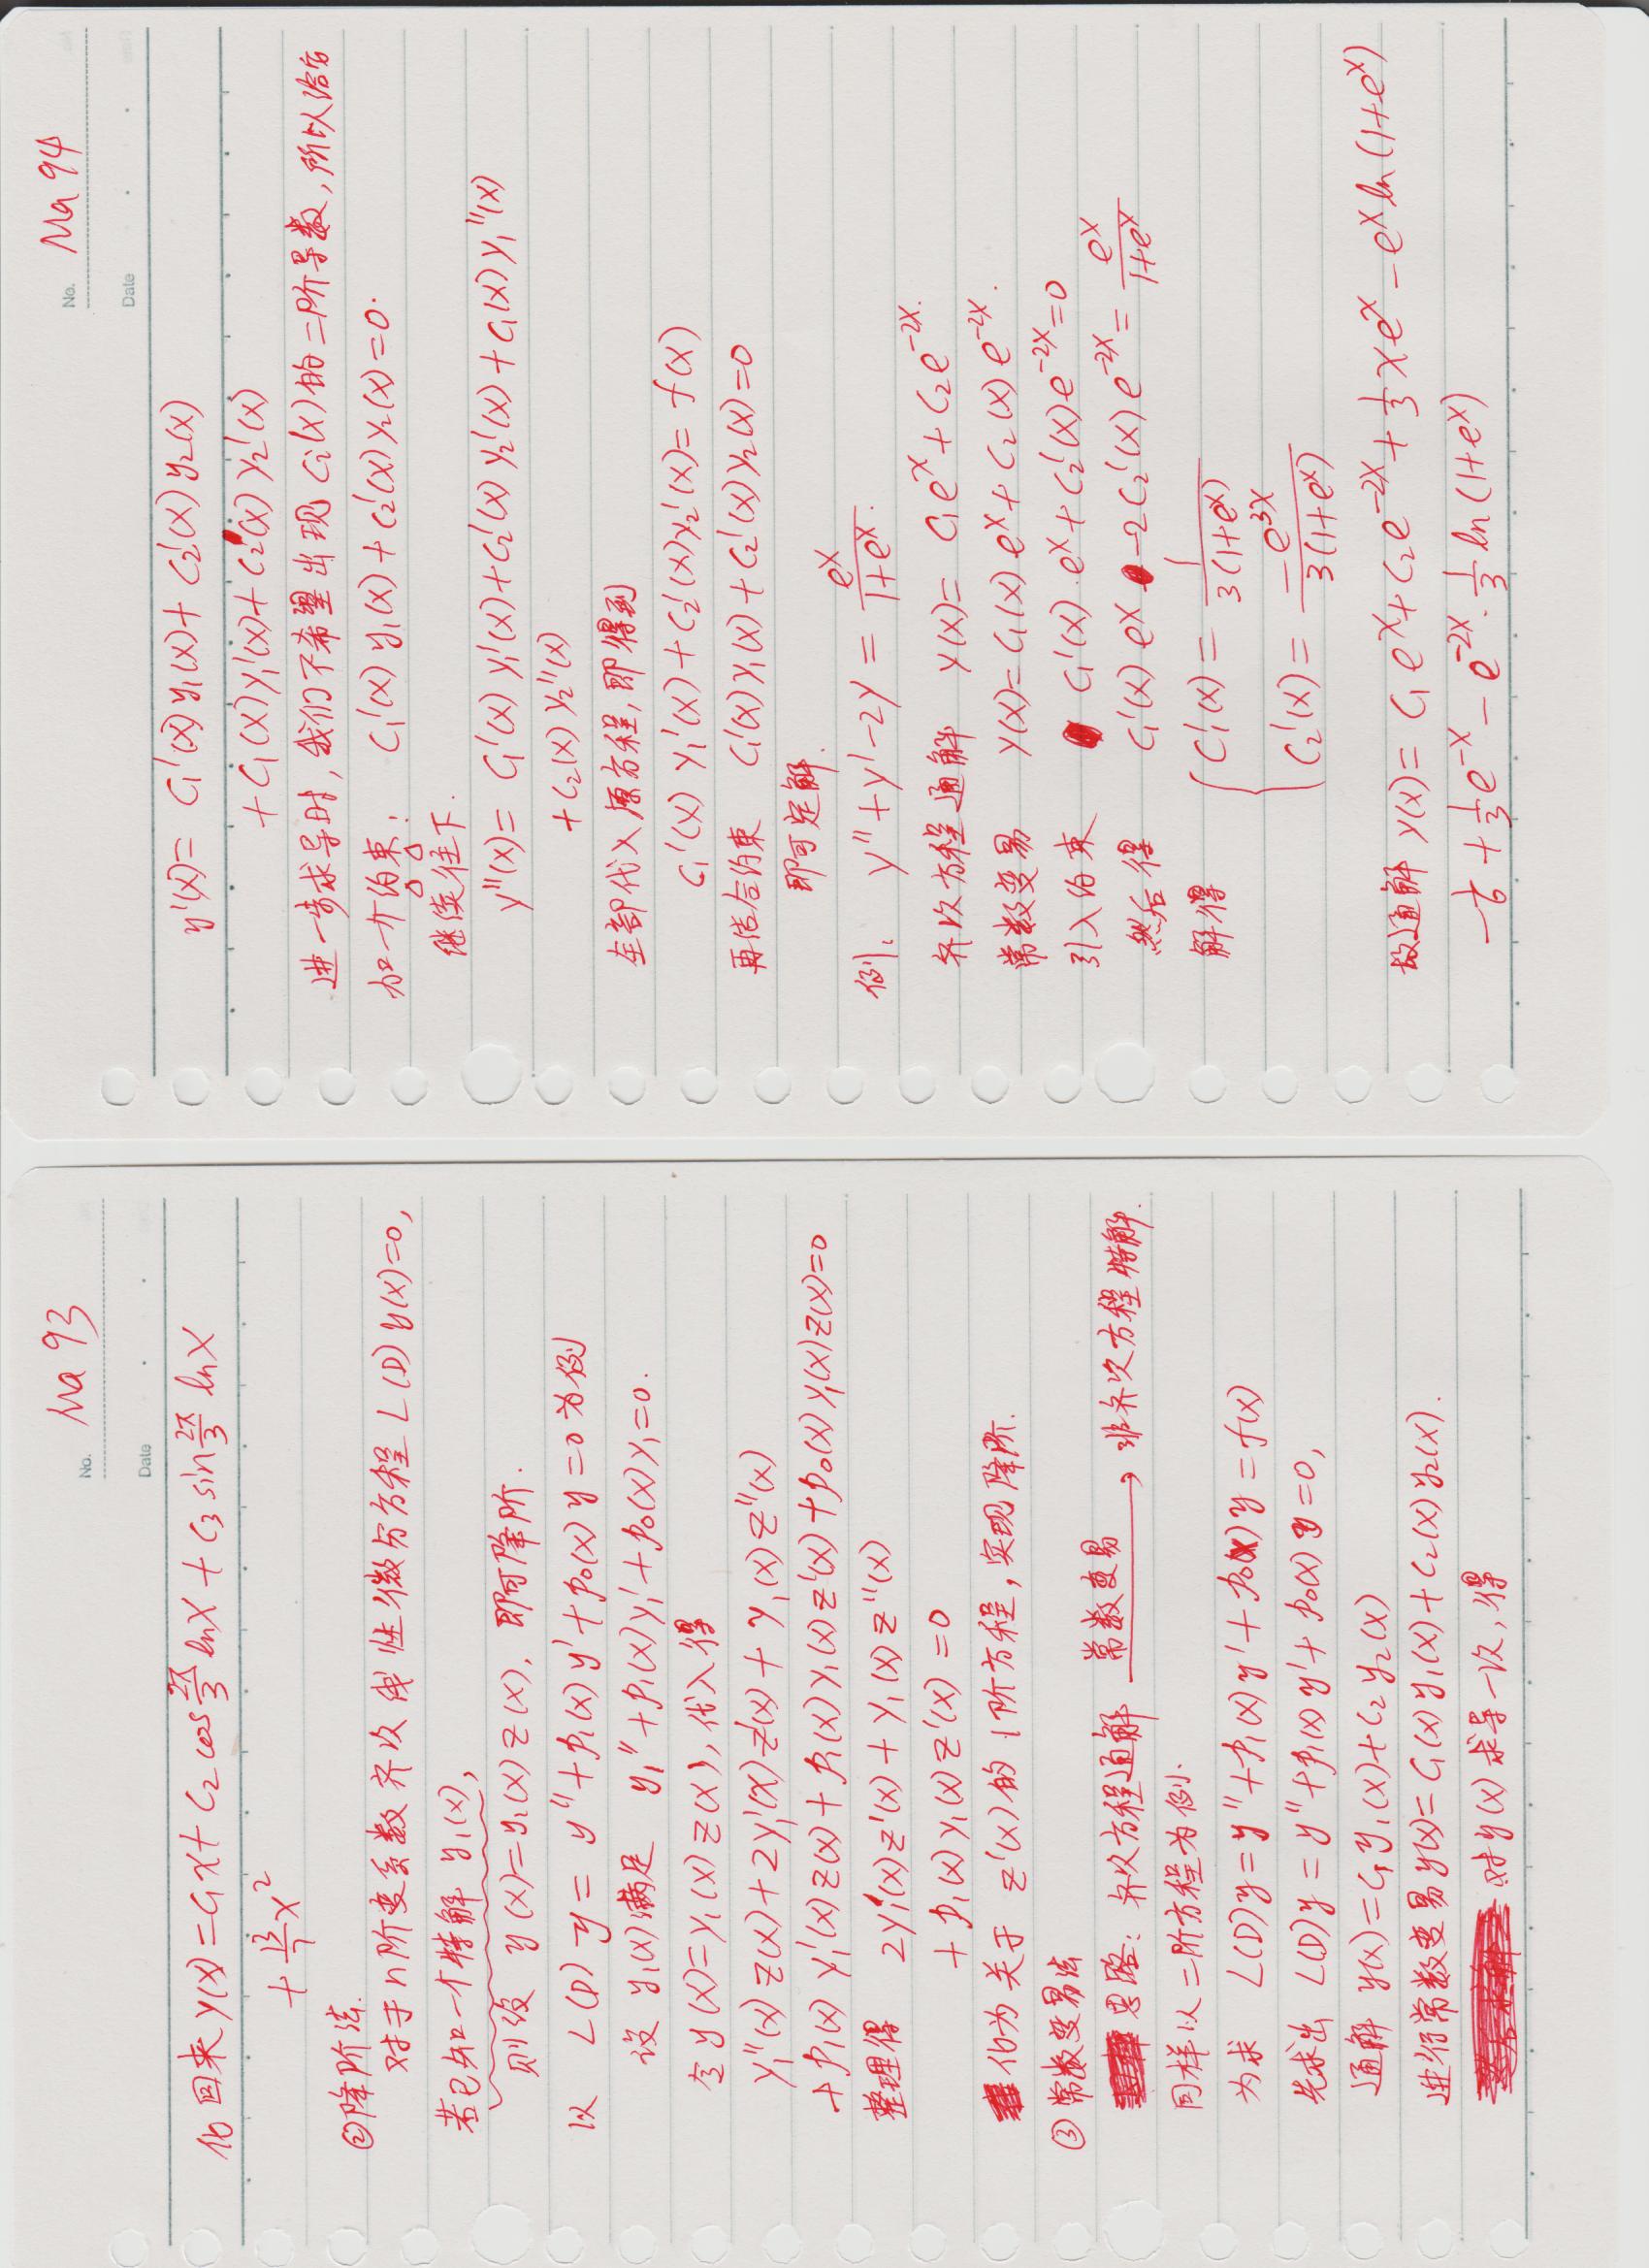 No. Ma 93
Date
化回来 y(x)=C₁x+C₂cos 2π/3 lnx+C₃sin 2π/3 lnx
+ 13/7 x²
②降阶法.
对于n阶变系数齐次线性微分方程L(D)y(x)=0,
若已知一个特解 y₁(x),
则设 y(x)=y₁(x)z(x), 即可降阶.
以 L(D)y= y''+p₁(x)y'+p₀(x)y=0为例
设 y₁(x)满足 y₁''+p₁(x)y₁'+p₀(x)y₁=0.
令y(x)=y₁(x)z(x), 代入得
y₁''(x)z(x)+2y₁'(x)z'(x)+y₁(x)z''(x)
+p₁(x)y₁'(x)z(x)+p₁(x)y₁(x)z'(x)+p₀(x)y₁(x)z(x)=0
整理得 2y₁'(x)z'(x)+y₁(x)z''(x)
+p₁(x)y₁(x)z'(x)=0
化为关于 z'(x)的1阶方程,实现降阶.
③常数变易法
思路: 齐次方程通解 常数变易→ 非齐次方程特解.
同样以二阶方程为例.
为求 L(D)y=y''+p₁(x)y'+p₀(x)y=f(x)
先求出 L(D)y=y''+p₁(x)y'+p₀(x)y=0,
通解 y(x)=C₁y₁(x)+C₂y₂(x)
进行常数变易y(x)=C₁(x)y₁(x)+C₂(x)y₂(x).
对y(x)求导一次,得
No. Ma 94
Date
y'(x)= C₁'(x)y₁(x)+C₂'(x)y₂(x)
+C₁(x)y₁'(x)+C₂(x)y₂'(x)
进一步求导时,我们不希望出现Cᵢ(x)的二阶导数,所以给它
加一个约束: C₁'(x)y₁(x)+C₂'(x)y₂(x)=0.
继续往下.
y''(x)= C₁'(x)y₁'(x)+C₂'(x)y₂'(x)+C₁(x)y₁''(x)
+C₂(x)y₂''(x)
全部代入原方程,即得到
C₁'(x)y₁'(x)+C₂'(x)y₂'(x)=f(x)
再结合约束 C₁'(x)y₁(x)+C₂'(x)y₂(x)=0
即可定解.
例. y''+y'-2y = eˣ/(1+eˣ).
齐次方程通解 y(x)= C₁eˣ+C₂e⁻²ˣ.
常数变易 y(x)=C₁(x)eˣ+C₂(x)e⁻²ˣ.
引入约束 C₁'(x)·eˣ+C₂'(x)e⁻²ˣ=0
然后得 C₁'(x)eˣ-2C₂'(x)e⁻²ˣ= eˣ/(1+eˣ)
解得 { C₁'(x)= 1/(3(1+eˣ))
C₂'(x)= -e³ˣ/(3(1+eˣ))
故通解 y(x)= C₁eˣ+C₂e⁻²ˣ+1/3 xeˣ-eˣln(1+eˣ)
-1/6+1/3 e⁻ˣ-e⁻²ˣ·1/3 ln(1+eˣ)